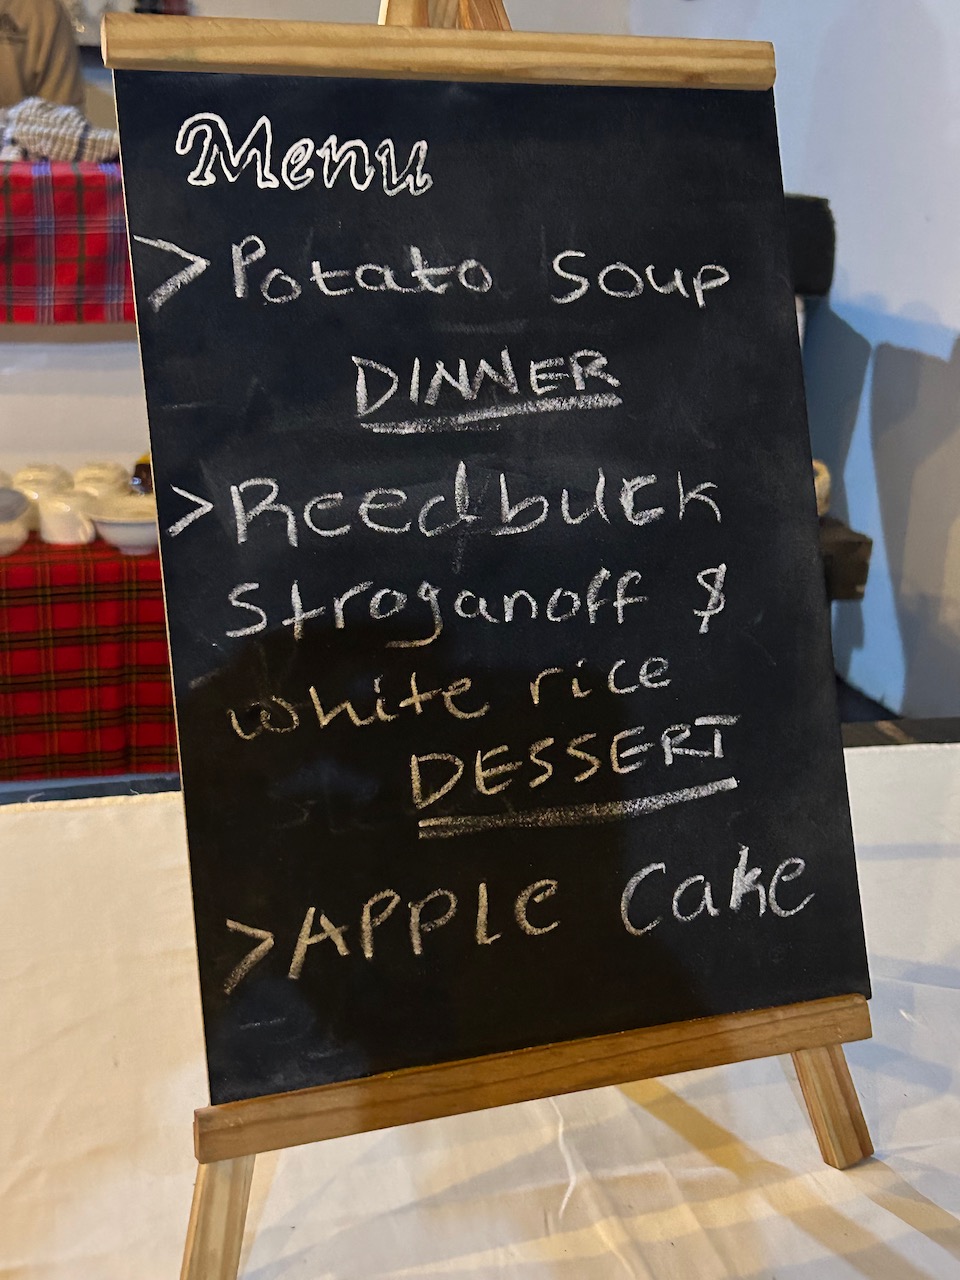 Menu
> Potato Soup
DINNER
> Reedbuck
Stroganoff $
white rice
DESSERT
> APPLe Cake